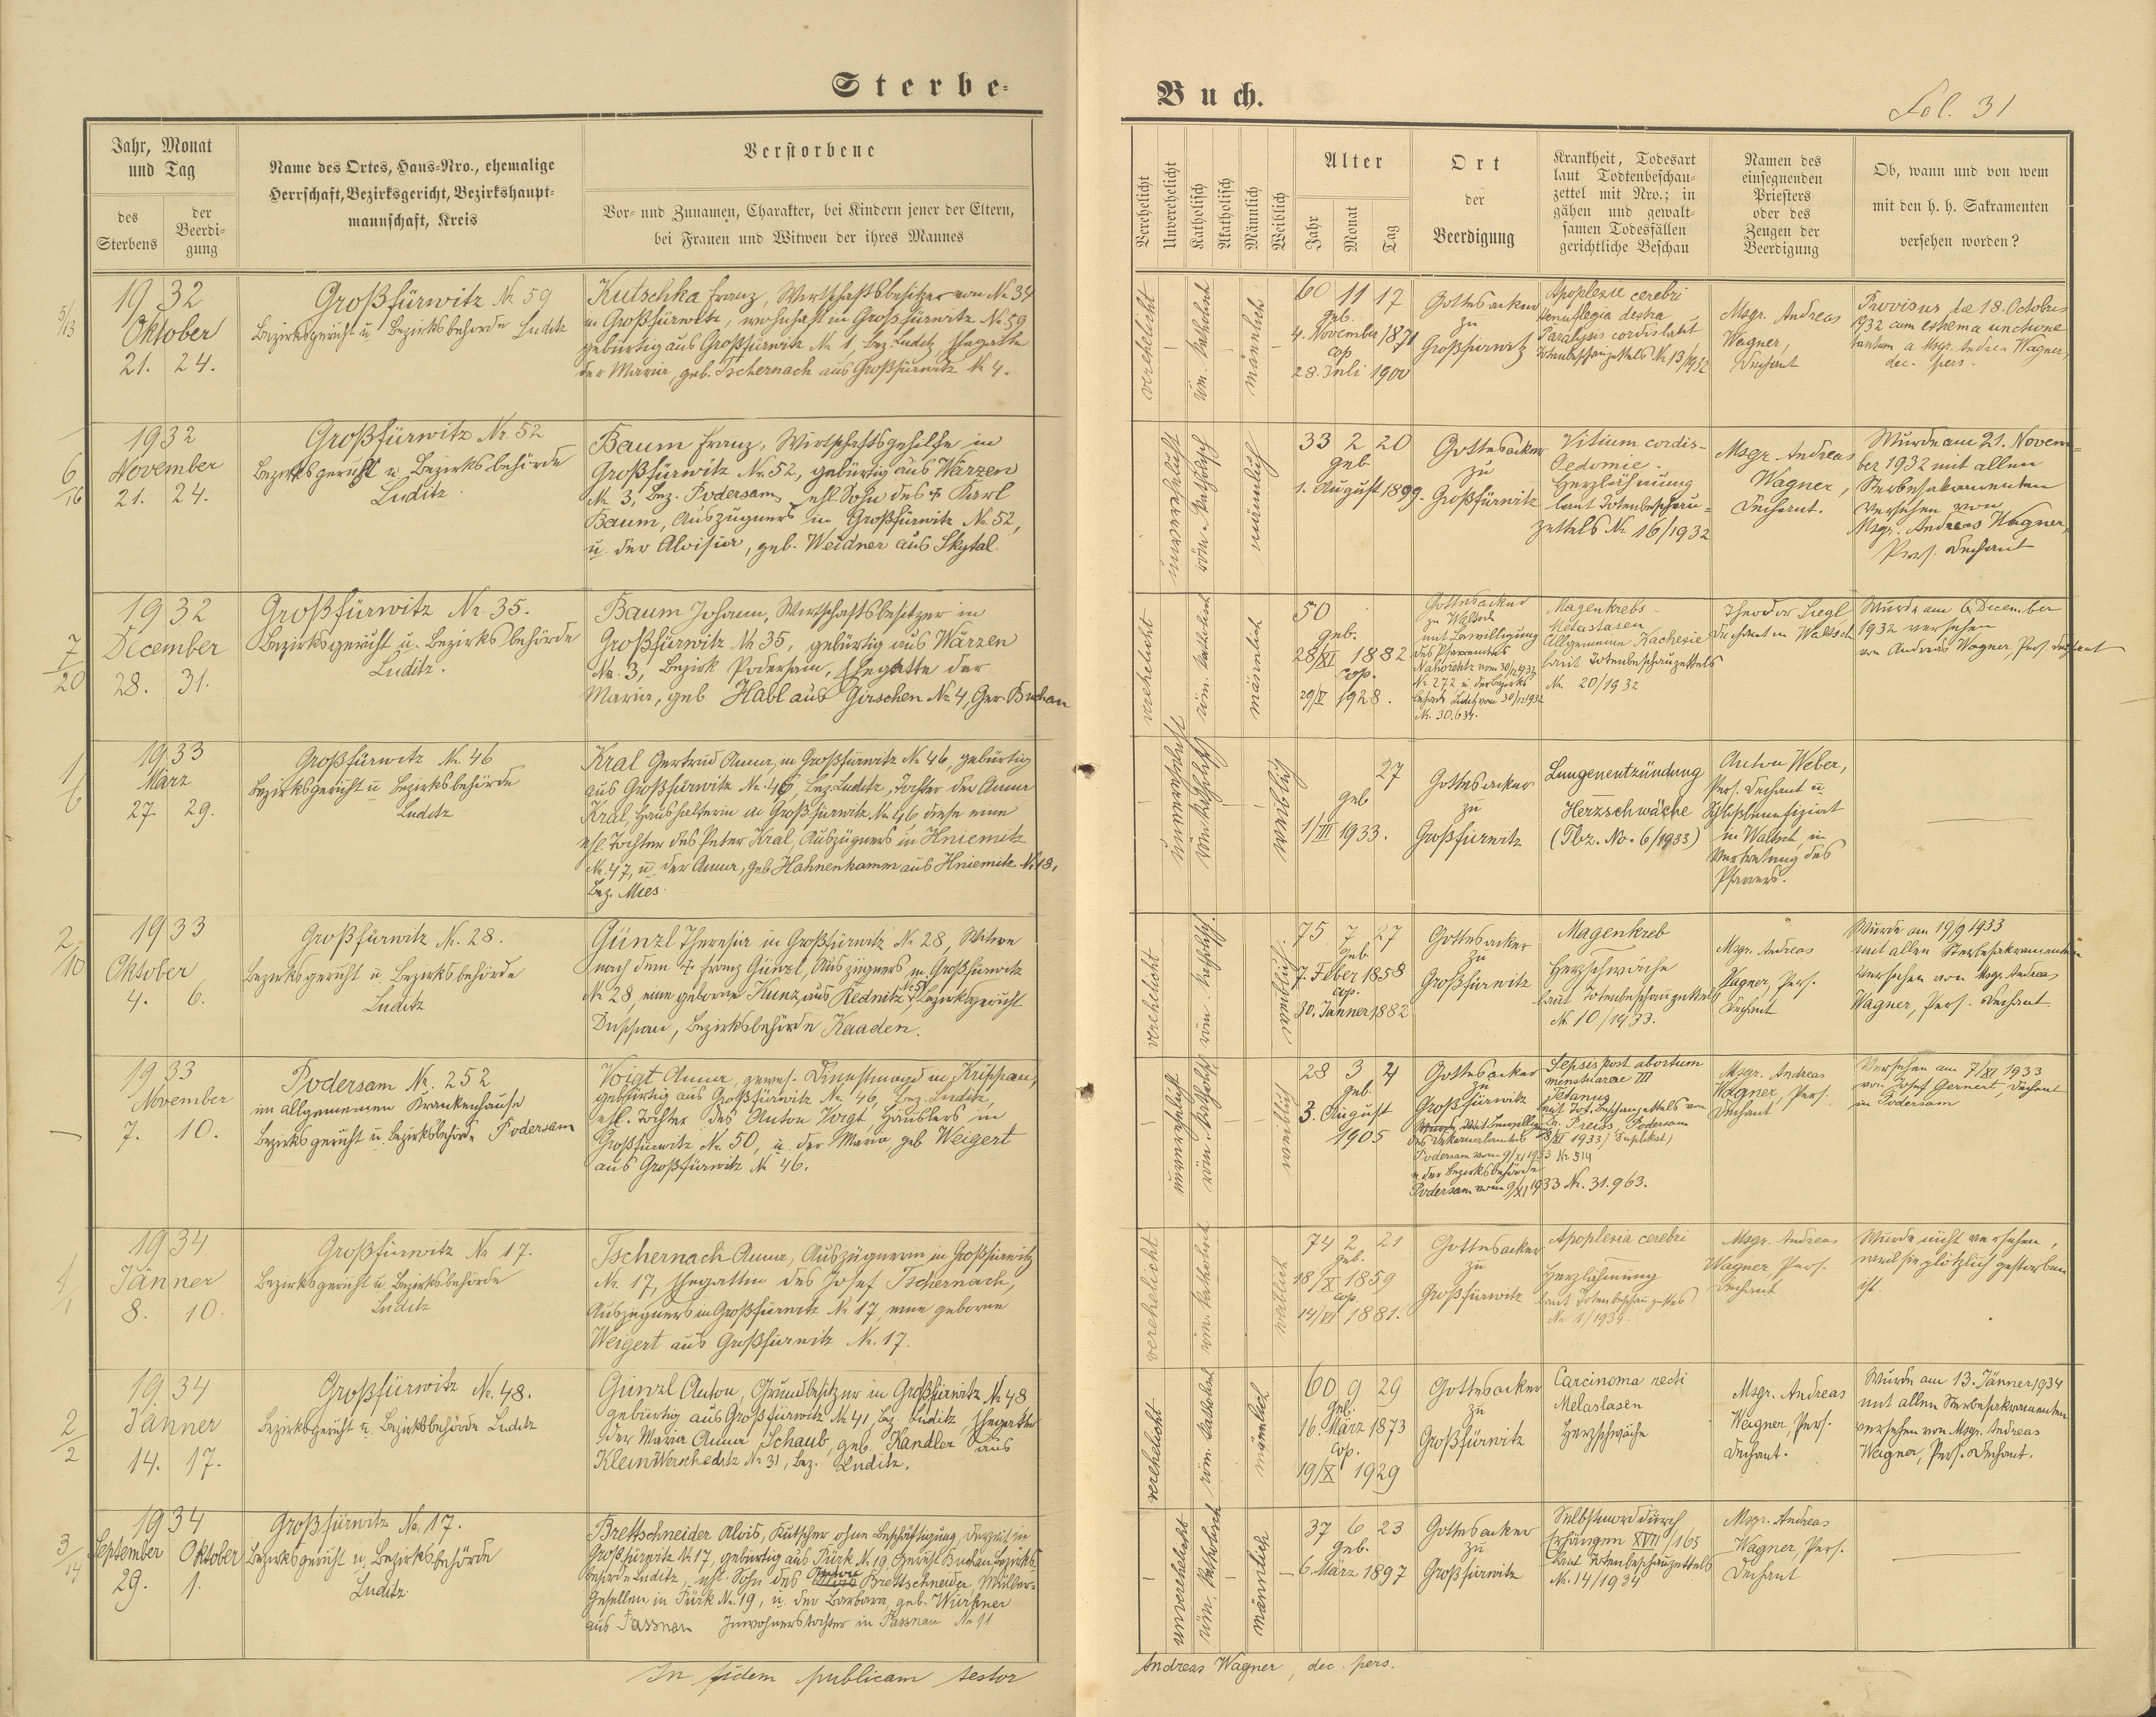 Sterbe-
Buch.
Fol. 31
Jahr, Monat
und Tag
des
Sterbens
der
Beerdi-
gung
Name des Ortes, Haus-Nro., ehemalige
Herrschaft, Bezirksgericht, Bezirkshaupt-
mannschaft, Kreis
Verstorbene
Vor- und Zunamen, Charakter, bei Kindern jener der Eltern,
bei Frauen und Witwen der ihres Mannes
Verehelicht
Unverehelicht
Katholisch
Akatholisch
Männlich
Weiblich
Alter
Jahr
Monat
Tag
Ort
der
Beerdigung
Krankheit, Todesart
laut Todtenbeschau-
zettel mit Nro.; in
gähen und gewalt-
samen Todesfällen
gerichtliche Beschau
Namen des
einsegnenden
Priesters
oder des
Zeugen der
Beerdigung
Ob, wann und von wem
mit den h. h. Sakramenten
versehen worden?
5/13
1932
Oktober
21. 24.
Großfürwitz Nr. 59
Bezirksgericht u. Bezirksbehörde Luditz
Kutschka Franz, Wirtschaftsbesitzer von Nr. 34
in Großfürwitz, wohnhaft in Großfürwitz Nr. 59
gebürtig aus Großfürwitz Nr. 1, Bez. Luditz, Ehegatte
der Maria, geb. Tschernach aus Großfürwitz Nr. 4.
verehelicht
röm. katholisch
männlich
60 11 17
geb.
4. November 1871
cop
28. Juli 1900
Gottesacker
zu
Großfürwitz
Apoplexie cerebri
Hemiplegia dextra
Paralysis cordis laut
Totenbeschauzettels Nr. 13/1932
Msgr. Andreas
Wagner,
Dechant
Provisus die 18. Octobris
1932 cum extrema unctione
tantum a Msgr. Andrea Wagner,
dec. pers.
6/16
1932
November
21. 24.
Großfürwitz Nr. 52
Bezirksgericht u. Bezirksbehörde
Luditz
Baum Franz, Wirtschaftsgehilfe in
Großfürwitz Nr. 52, gebürtig aus Wärzen
Nr. 3, Bez. Podersam, ehl. Sohn des † Karl
Baum, Auszügners in Großfürwitz Nr. 52,
u. der Aloisia, geb. Weidner aus Skytal.
unverehelicht
röm. katholisch
männlich
33 2 20
geb.
1. August 1899.
Gottesacker
zu
Großfürwitz
Vitium cordis-
Oedomie.
Herzlähmung
laut Totenbeschau-
zettels Nr. 16/1932
Msgr. Andreas
Wagner,
Dechant.
Wurde am 21. Novem-
ber 1932 mit allen
Sterbesakramenten
versehen von
Msgr. Andreas Wagner,
Pers. Dechant
7/20
1932
December
28. 31.
Großfürwitz Nr. 35.
Bezirksgericht u. Bezirksbehörde
Luditz.
Baum Johann, Wirtschaftsbesitzer in
Großfürwitz Nr. 35, gebürtig aus Wärzen
Nr. 3, Bezirk Podersam, Ehegatte der
Maria, geb. Habl aus Girschen Nr. 4, Ger. Buchau
verehelicht
röm. katholisch
männlich
50
geb.
28/XI 1882
cop.
29/V 1928.
Gottesacker
zu Waltsch
mit Bewilligung
des Pfarramtes
vom 30/12 1932
Nr. 272 u. der Bezirks-
behörde Luditz vom 30/12 1932
Magenkrebs-
Metastasen
Allgemeine Kachexie
laut Totenbeschauzettels
Nr. 20/1932
Theodor Siegl
Dechant in Waltsch
Wurde am 6. December
1932 versehen
von Andreas Wagner, Pers. Dechant
1/6
1933
März
27. 29.
Großfürwitz Nr. 46
Bezirksgericht u. Bezirksbehörde
Luditz
Kral Gertrud Anna, in Großfürwitz Nr. 46, gebürtig
aus Großfürwitz Nr. 46, Bez. Luditz, Tochter der Anna
Kral, Haushälterin in Großfürwitz Nr. 46 diese eine
ehl. Tochter des Peter Kral, Auszügners in Hniemitz
Nr. 47, u. der Anna, geb. Hahnenkamm aus Hniemitz Nr. 18,
Bez. Mies.
unverehelicht
röm. katholisch
weiblich
27
geb
1/III 1933.
Gottesacker
zu
Großfürwitz
Lungenentzündung
Herzschwäche
(Tbz. No. 6/1933)
Anton Weber,
Pers. Dechant u.
Schloßbenefiziat
in Waltsch, in
Vertretung des
Pfarrers.
2/10
1933
Oktober
4. 6.
Großfürwitz Nr. 28.
Bezirksgericht u. Bezirksbehörde
Luditz
Günzl Theresia in Großfürwitz Nr. 28, Witwe
nach dem † Franz Günzl, Auszügners in Großfürwitz
Nr. 28, eine geborne Kunz aus Rednitz Nr. 5, Bezirksgericht
Duppau, Bezirksbehörde Kaaden.
verehelicht
röm. katholisch.
weiblich.
75 7 27
geb.
7. Feber 1858
cop.
30. Jänner 1882
Gottesacker
zu
Großfürwitz
Magenkreb
Herzschwäche
laut Totenbeschauzettels
Nr. 10/1933.
Msgr. Andreas
Wagner, Pers.
Dechant
Wurde am 19/9 1933
mit allen Sterbesakramenten
versehen von Msgr. Andreas
Wagner, Pers. Dechant.
1933
November
7. 10.
Podersam Nr. 252
im allgemeinen Krankenhause
Bezirksgericht u. Bezirksbehörde Podersam
Voigt Anna, gewes. Dienstmagd in Krippau,
gebürtig aus Großfürwitz Nr. 46, Bez. Luditz,
ehl. Tochter des Anton Voigt, Häuslers in
Großfürwitz Nr. 50, u. der Maria geb. Weigert
aus Großfürwitz Nr. 46.
unverehelicht
röm. katholisch
weiblich
28 3 4
geb.
3. August
1905
Gottesacker
zu
Großfürwitz
Podersam vom 9/XI 1933 Nr. 514
u. der Bezirksbehörde
Podersam vom 9/XI 1933 Nr. 31.963.
Sepsis post abortum
Tetanus
laut Tot. beschauzettels von
Dr. Preiss, Podersam
8/XI 1933 (Duplikat)
Msgr. Andreas
Wagner, Pers.
Dechant
Versehen am 7/XI 1933
von Josef Gernert, Dechant
in Podersam
1/1
1934
Jänner
8. 10.
Großfürwitz Nr. 17.
Bezirksgericht u. Bezirksbehörde
Luditz
Tschernach Anna, Auszügnerin in Großfürwitz
Nr. 17, Ehegattin des Josef Tschernach,
Auszügners in Großfürwitz Nr. 17, eine geborne
Weigert aus Großfürwitz Nr. 17.
verehelicht
röm. katholisch
weiblich
74 2 21
geb.
18/X 1859
cop
14/VI 1881.
Gottesacker
zu
Großfürwitz
Apoplexia cerebri
Herzlähmung
laut Totenbeschauzettels
Nr. 1/1934.
Msgr. Andreas
Wagner, Pers.
Dechant
Wurde nicht versehen,
weil sie plötzlich gestorben
ist.
2/2
1934
Jänner
14. 17.
Großfürwitz Nr. 48.
Bezirksgericht u. Bezirksbehörde Luditz
Günzl Anton, Grundbesitzer in Großfürwitz Nr. 48
gebürtig aus Großfürwitz Nr. 41, Bez. Luditz, Ehegatte
der Maria Anna Schaub, geb. Kandler aus
Kleinwerscheditz Nr. 31, Bez. Luditz.
verehelicht
röm. katholisch
männlich
60 9 29
geb.
16. März 1873
cop.
19/X 1929
Gottesacker
zu
Großfürwitz
Carcinoma recti
Metastasen
Herzschwäche
Msgr. Andreas
Wagner, Pers.
Dechant.
Wurde am 13. Jänner 1934
mit allen Sterbesakramenten
versehen von Msgr. Andreas
Wagner, Pers. Dechant.
3/14
1934
September Oktober
29. 1.
Großfürwitz Nr. 17.
Bezirksgericht u. Bezirksbehörde
Luditz.
Brettschneider Alois, Kutscher ohne Beschäftigung, derzeit in
Großfürwitz Nr. 17, gebürtig aus Pürk Nr. 19 Gericht Buchau Bezirks-
behörde Luditz, ehl. Sohn des Anton Brettschneider, Müller-
gesellen in Pürk Nr. 19, u. der Barbara, geb. Würfner
aus Passnau Inwohnerstochter in Passnau Nr. 11
unverehelicht
röm. katholisch
männlich
37 6 23
geb.
6. März 1897
Gottesacker
zu
Großfürwitz
Selbstmord durch
Erhängen XVII/165
laut Totenbeschauzettels
Nr. 14/1934
Msgr. Andreas
Wagner, Pers.
Dechant
In fidem publicam testor
Andreas Wagner, dec. pers.